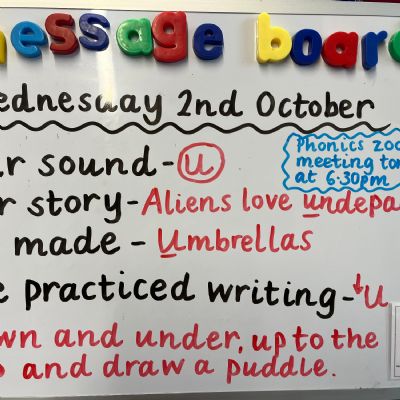 message board
Wednesday 2nd October
Phonics zoo
meeting
at 6.30pm
sound - u
story - Aliens love
made - Umbrellas
practiced writing - ↓u
and under, up to the
and draw a puddle.